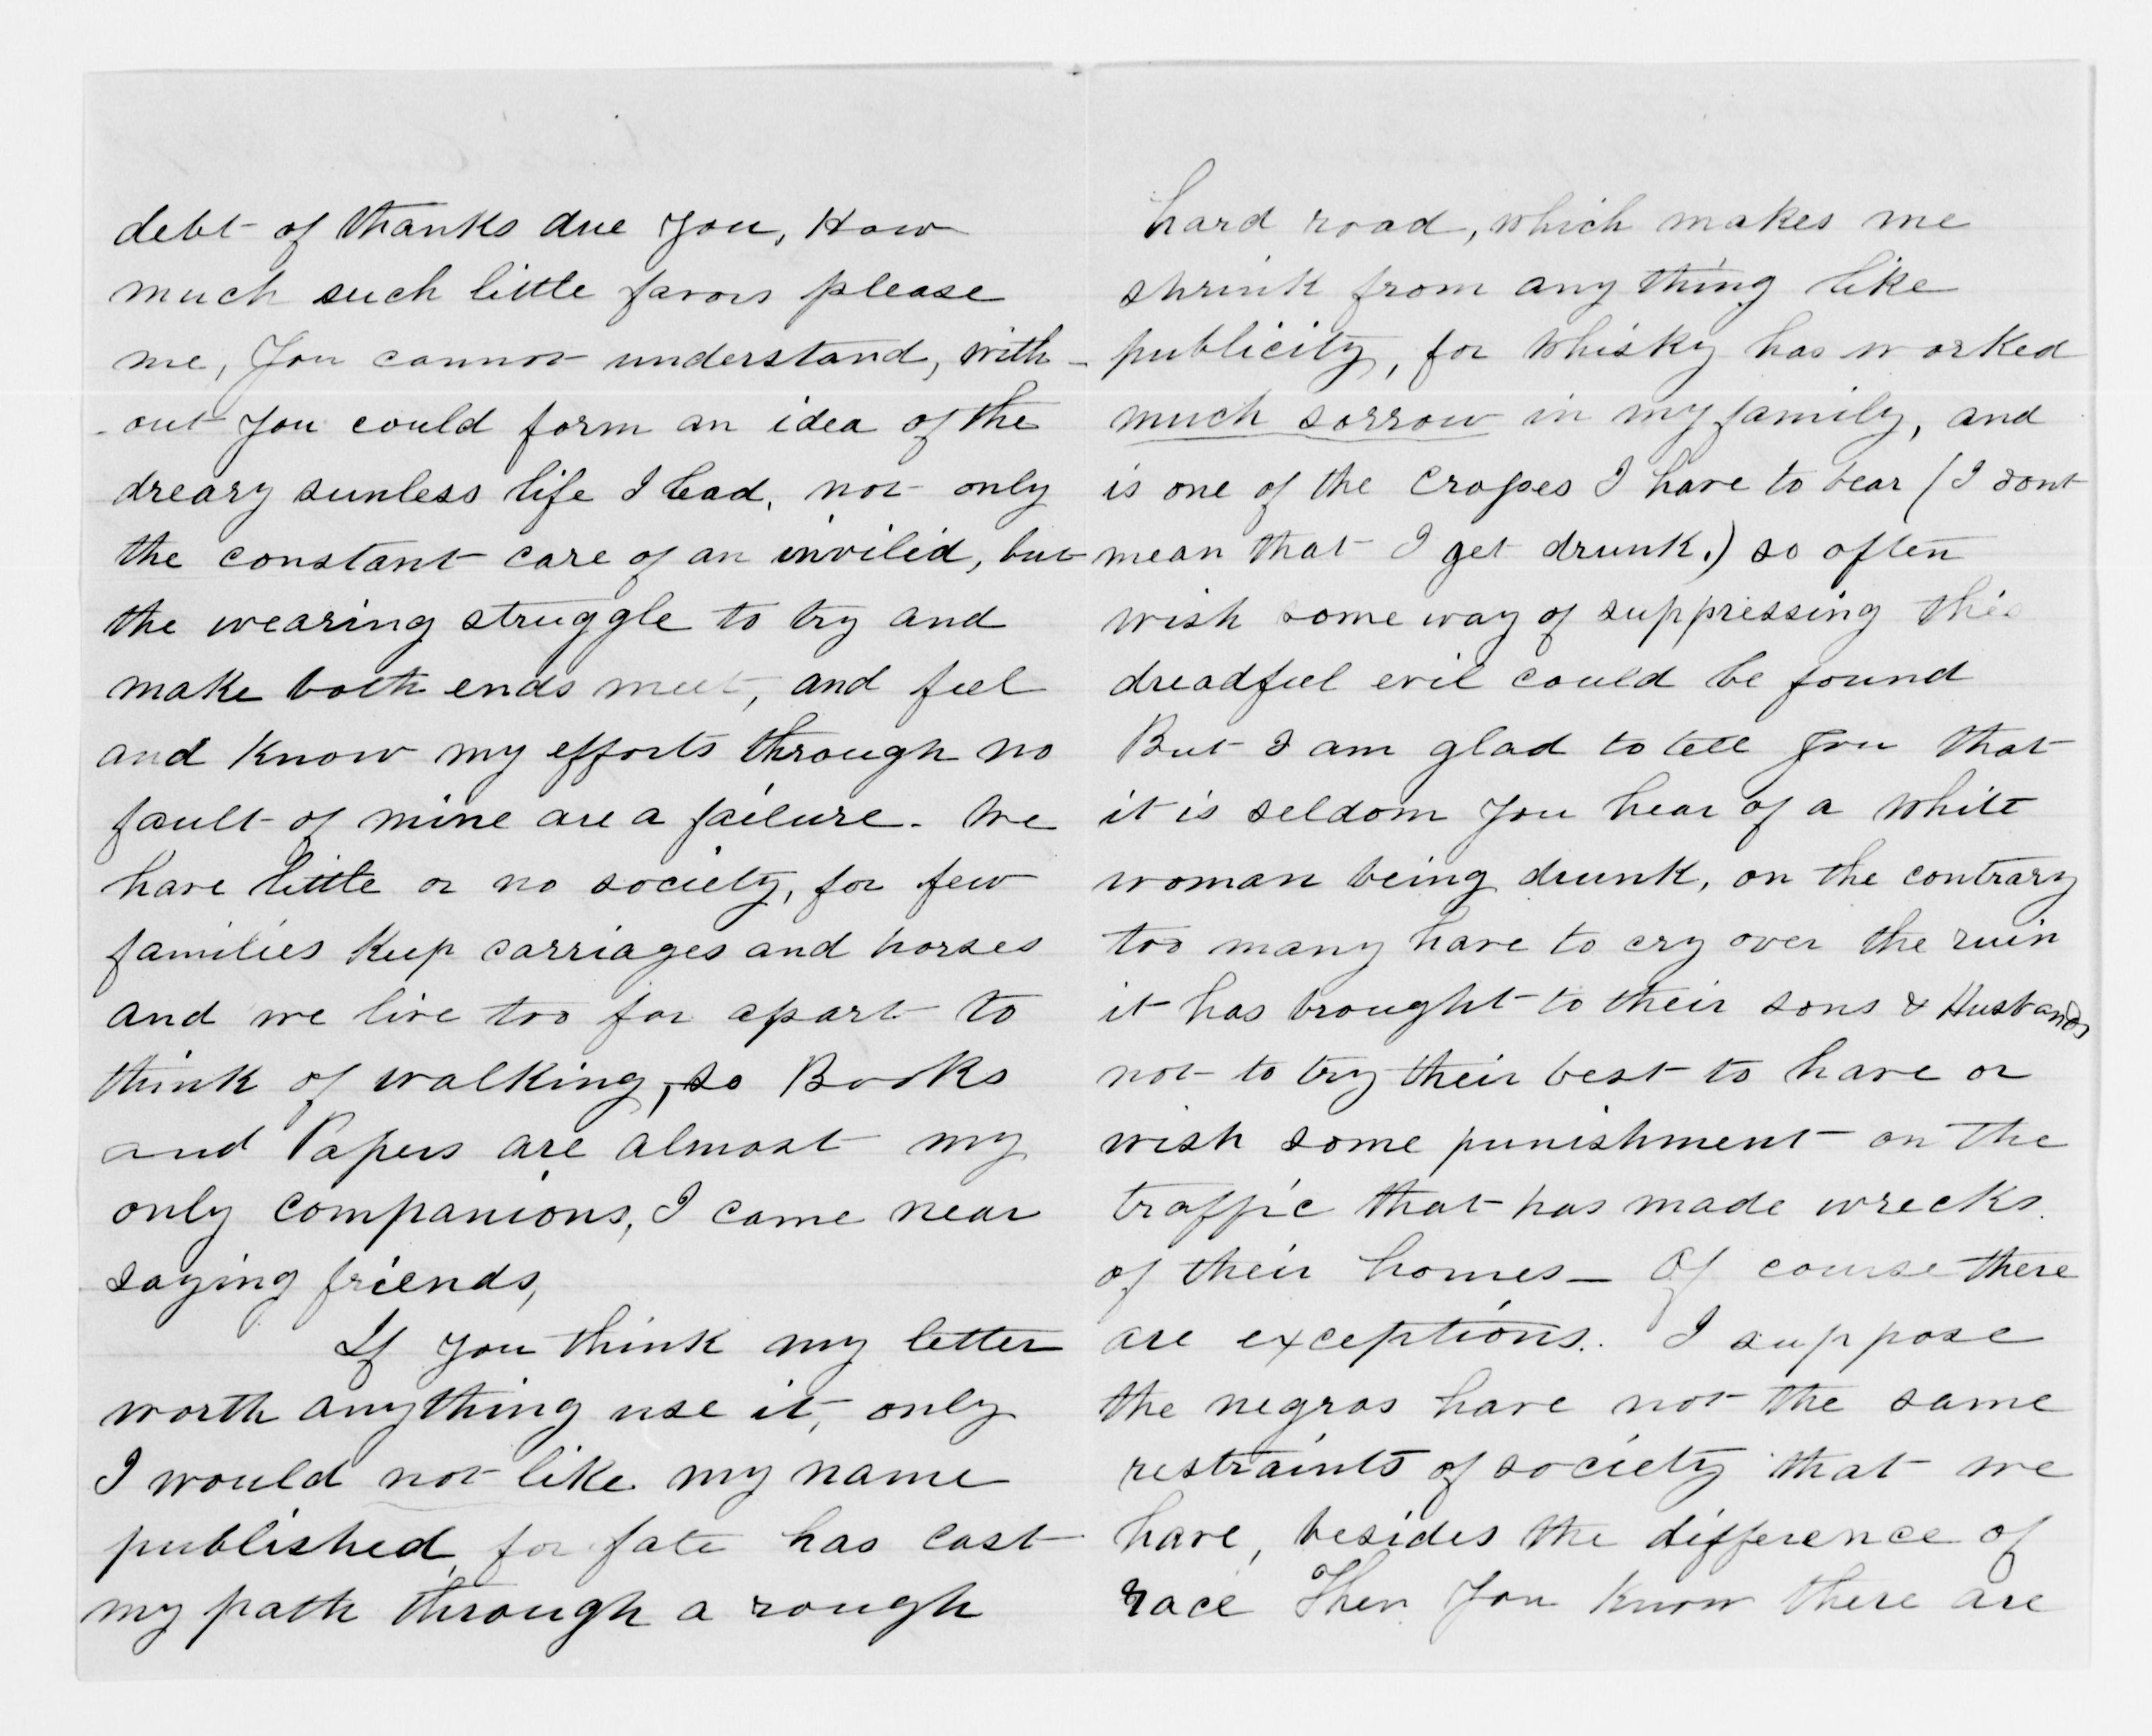 debt of thanks due you, How
much such little favors please
me, You cannot understand, with-
-out you could form an idea of the
dreary sunless life I lead, not only
the constant care of an invilid, but
the wearing struggle to try and
make both ends meet, and feel
and know my efforts through no
fault of mine are a failure. We
have little or no society, for few
families keep carriages and horses
and we live too far apart to
think of walking, so Books
and Papers are almost my
only companions, I came near
saying friends,
If you think my letter
worth anything use it, only
I would not like my name
published, for fate has cast
my path through a rough
hard road, which makes me
shrink from any thing like
publicity, for whisky has worked
much sorrow in my family, and
is one of the crosses I have to bear (I dont
mean that I get drunk.) so often
wish some way of suppressing this
dreadful evil could be found
But I am glad to tell you that
it is seldom you hear of a white
woman being drunk, on the contrary
too many have to cry over the ruin
it has brought to their sons & Husbands
not to try their best to have or
wish some punishment on the
traffic that has made wrecks
of their homes— Of course there
are exceptions. I suppose
the negros have not the same
restraints of society that we
have, besides the difference of
race Then you know there are